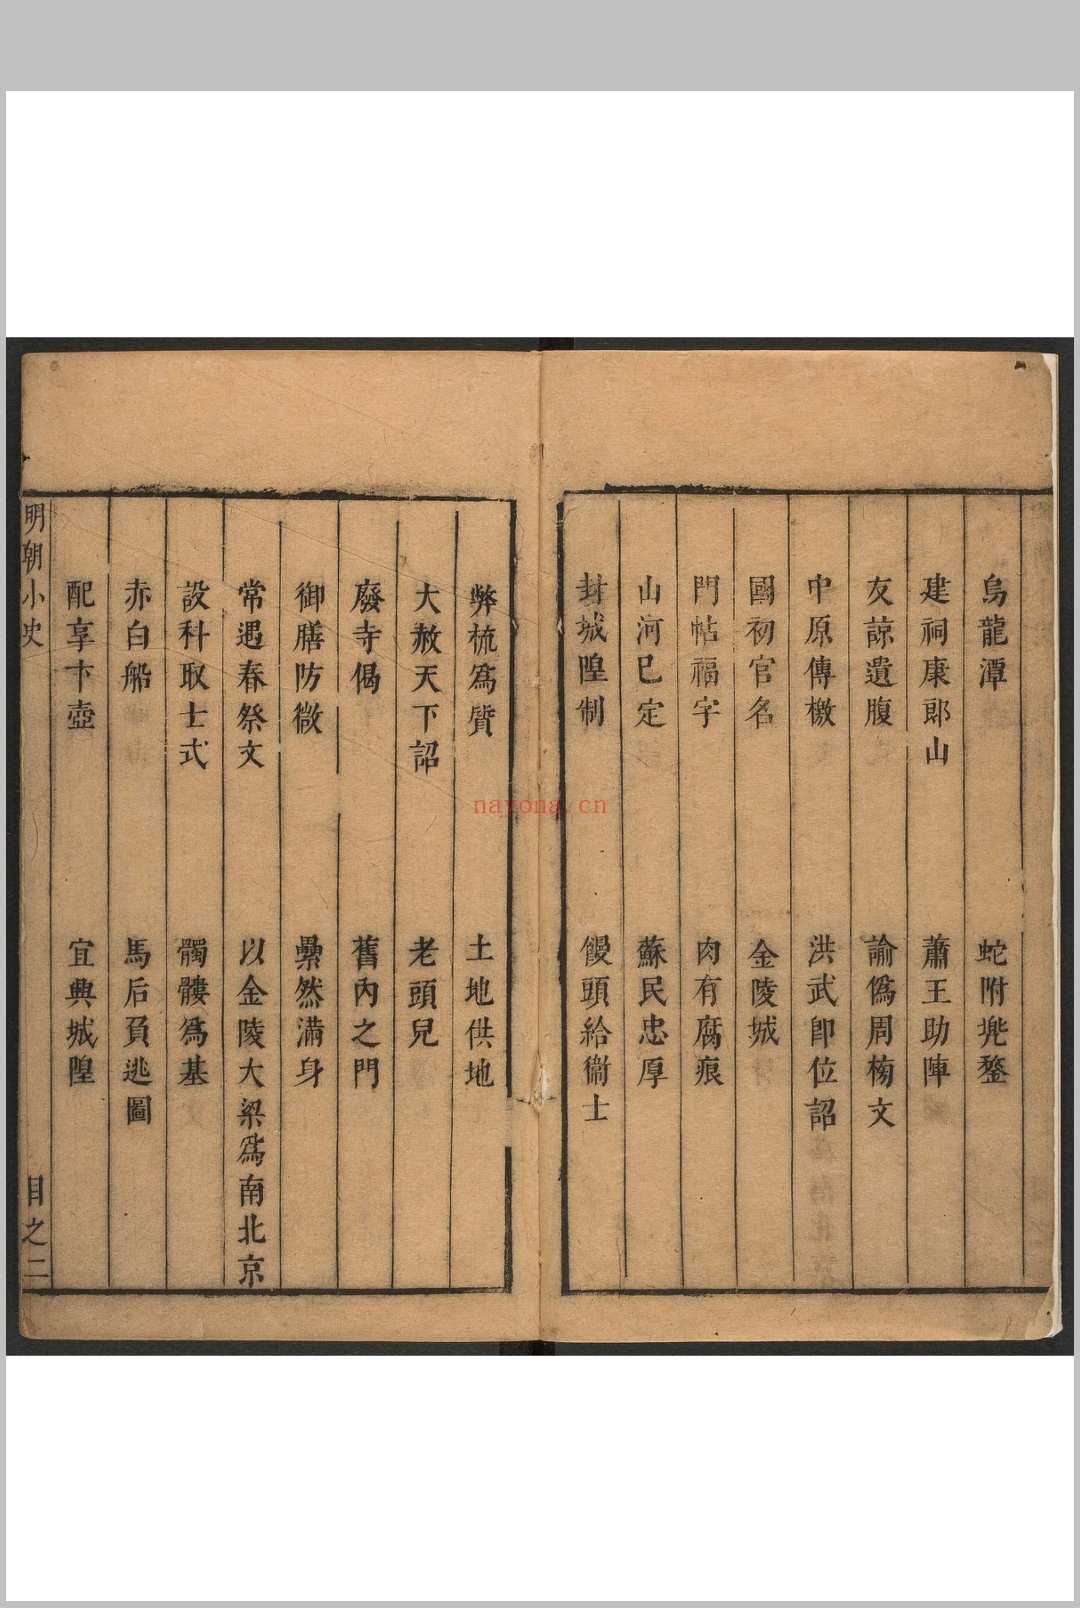 烏龍潭 蛇附兠鍪
建祠康郎山 蕭王助陣
友諒遺腹 諭僞周榜文
中原傳檄 洪武即位詔
國初官名 金陵城
門帖福字 肉有腐痕
山河已定 蘇民忠厚
封城隍制 饅頭給衞士
弊梳爲贄 土地供地
大赦天下詔 老頭兒
廢寺偈 舊内之門
御膳防微 纍然滿身
常遇春祭文 以金陵大梁爲南北京
設科取士式 髑髏爲基
赤白船 馬后負逃圖
配享卞壺 宜興城隍
明朝小史 目之二
nayona.cn